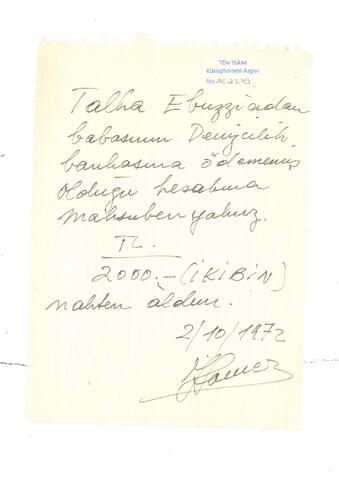 TDV İSAM
Kütüphanesi Arşivi
No
Talha Ebuzziadan
babasının Denizcilik
bankasına ödememiş
olduğu hesabına
mahsuben yalnız.
TL.
2000.-(İKİBİN)
nakten aldım.
2/10/1972